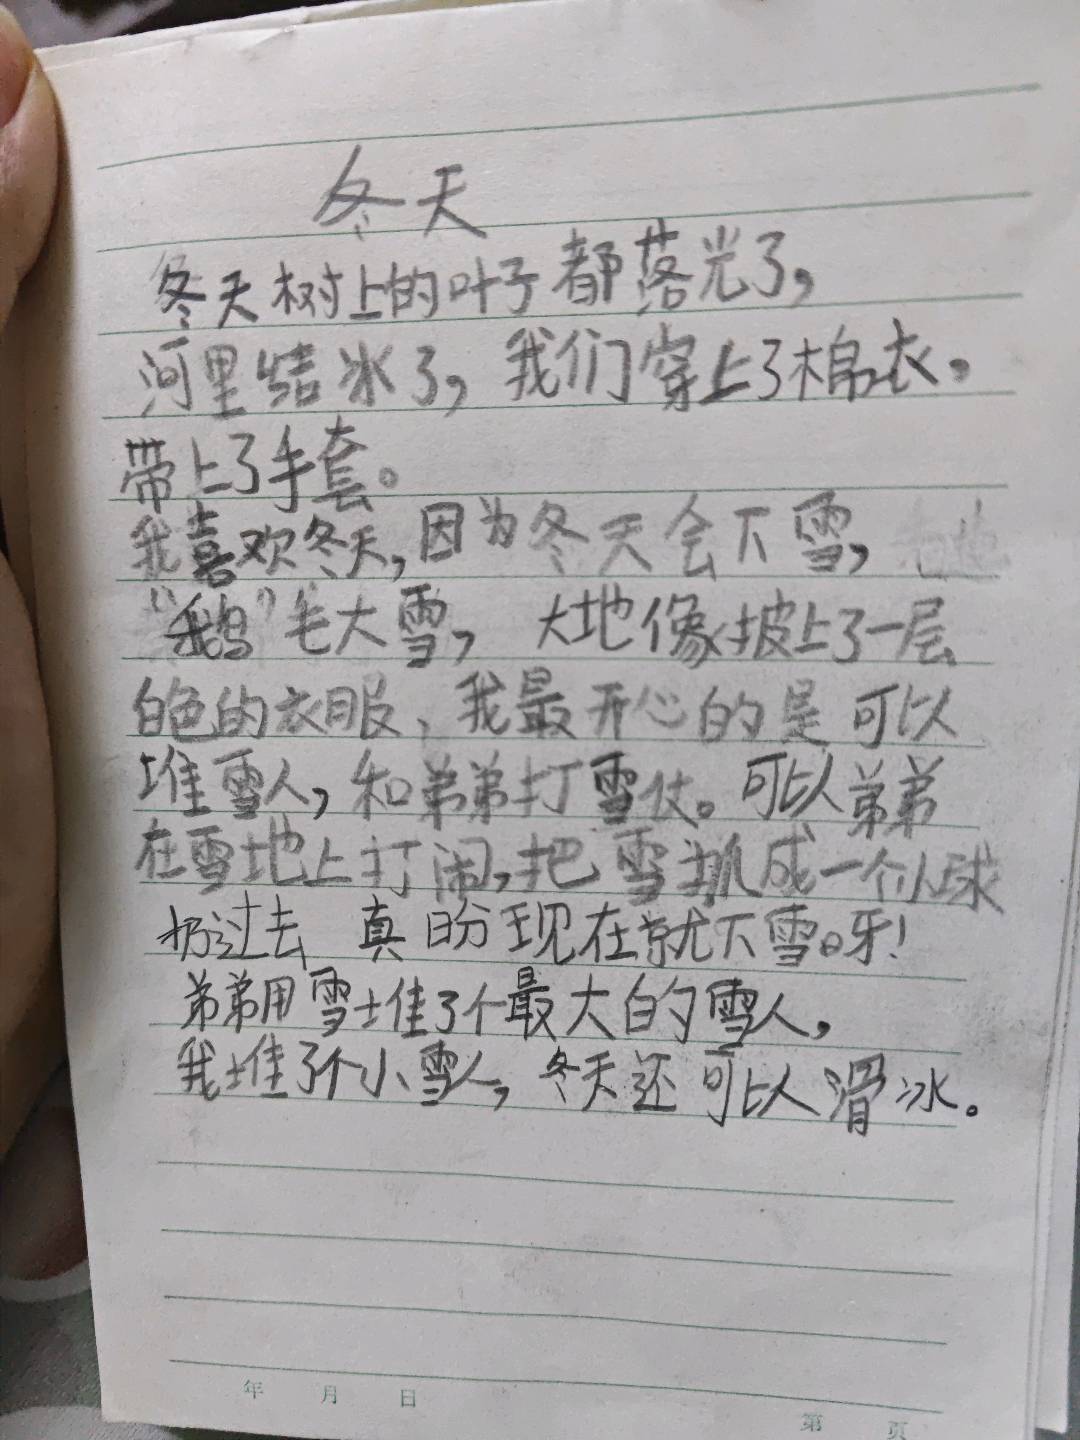 冬天
冬天树上的叶子都落光了,
河里结冰了,我们穿上了棉衣,
带上了手套。
我喜欢冬天,因为冬天会下雪,
“鹅”毛大雪,大地像披上了一层
白色的衣服、我最开心的是可以
堆雪人,和弟弟打雪仗。可以弟弟
在雪地上打闹,把雪抓成一个小球
扔过去 真盼现在就下雪呀!
弟弟用雪堆了个最大白的雪人,
我堆了个小雪人,冬天还可以滑冰。
年 月 日
第 页